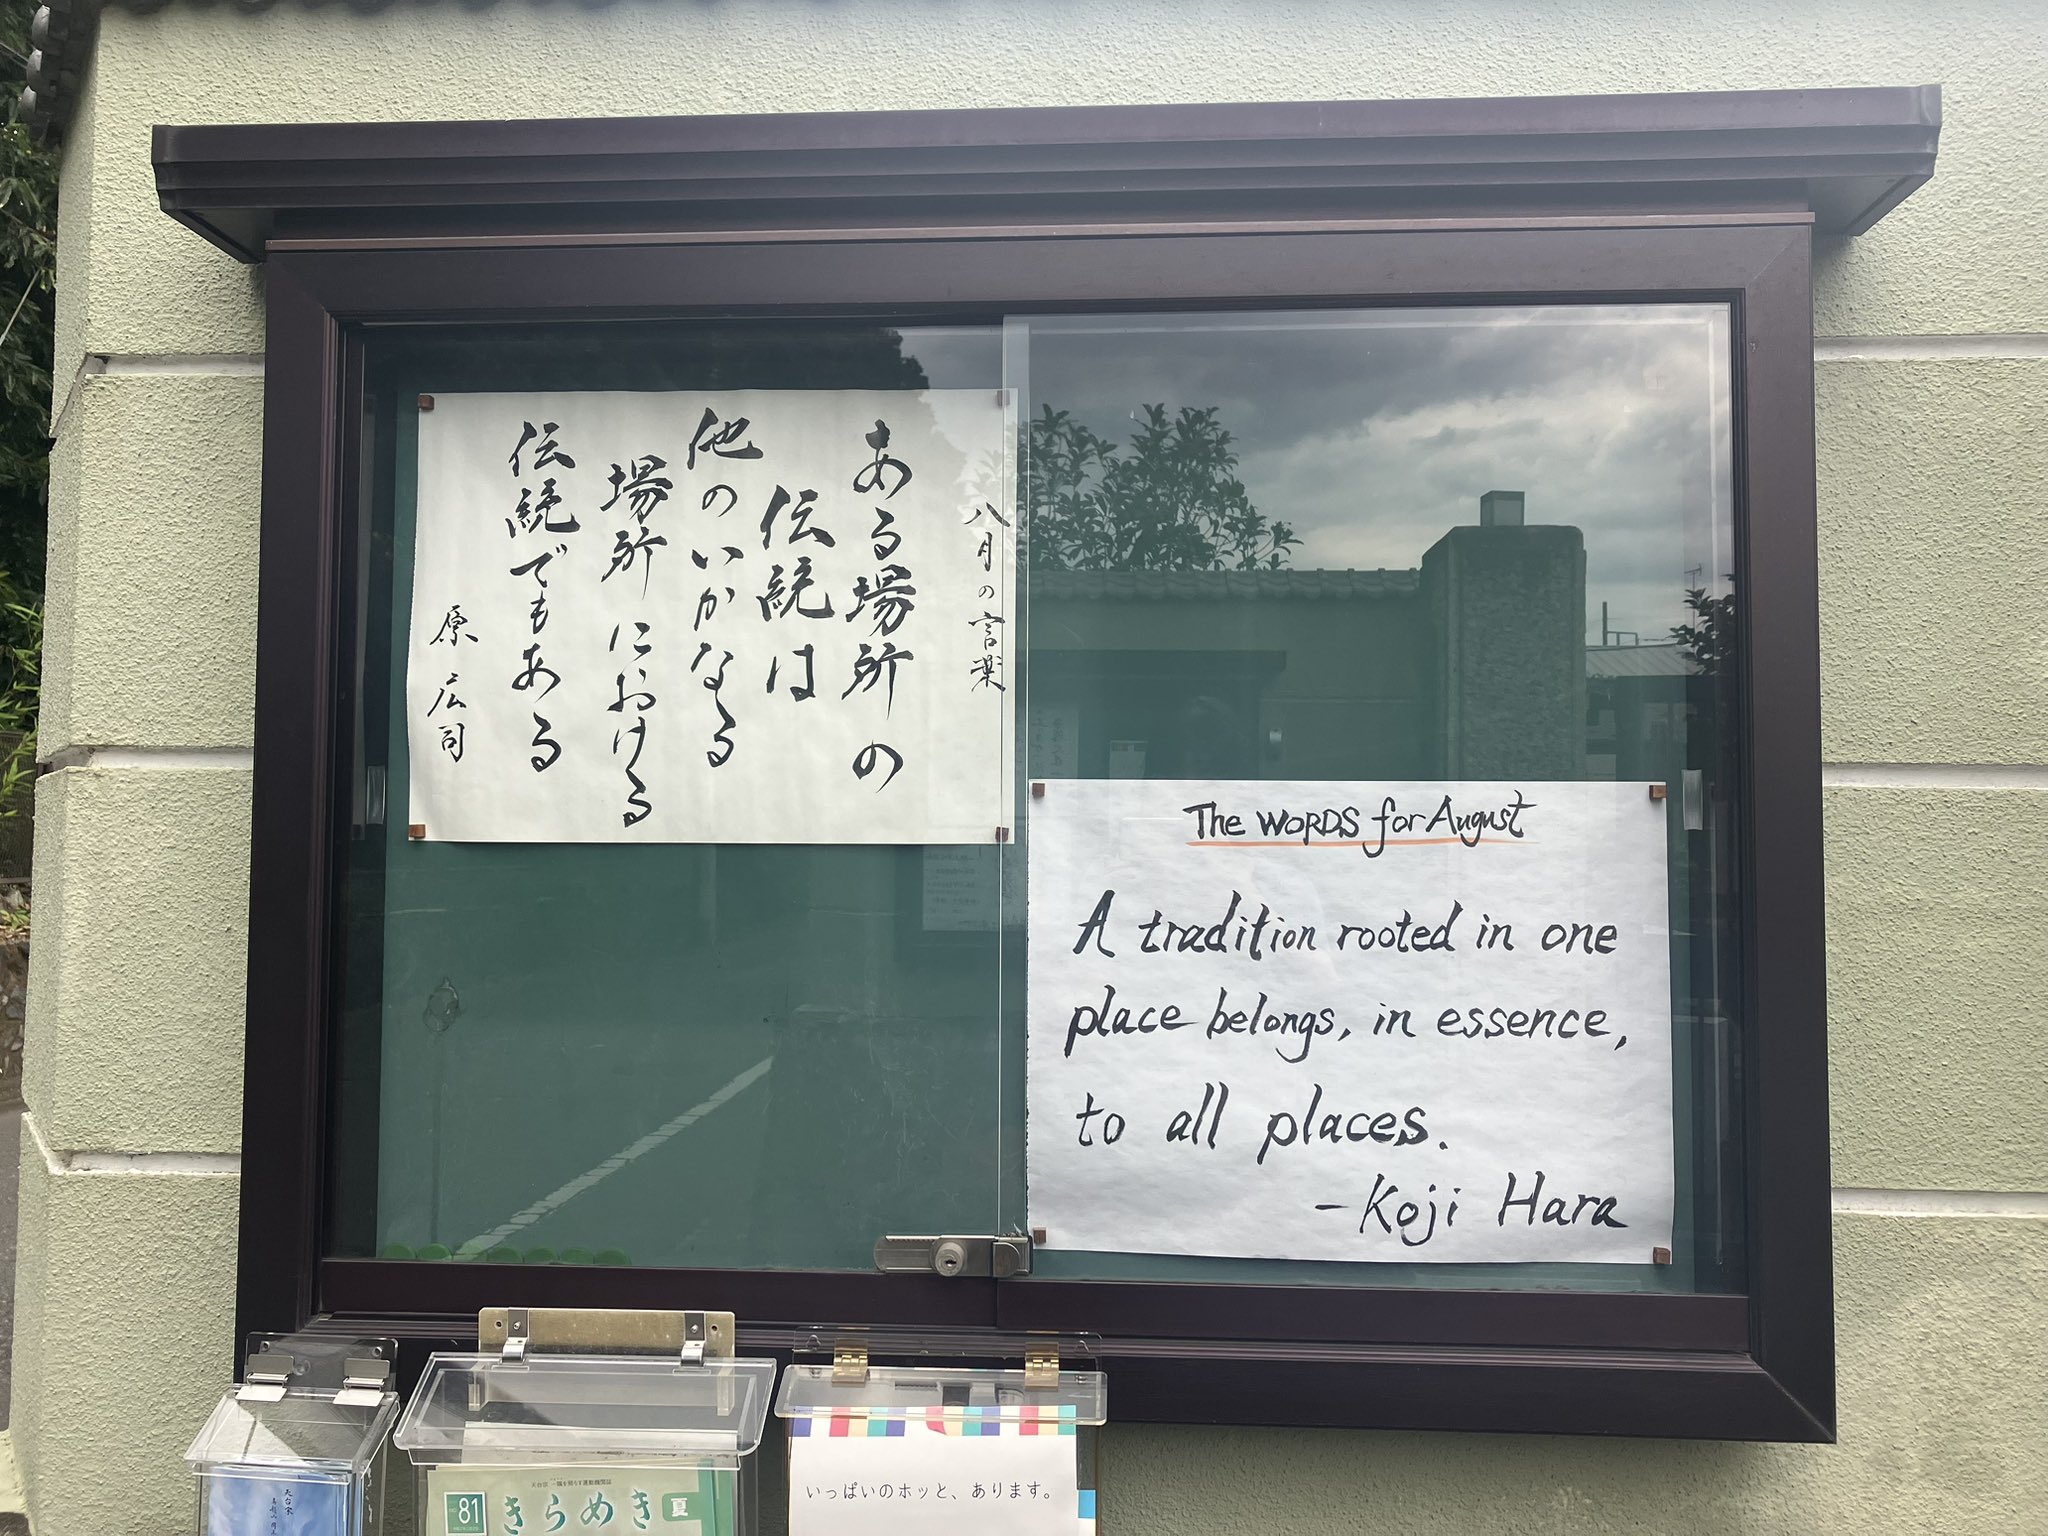 八月の言葉
ある場所の
伝統は
他のいかなる
場所における
伝統でもある
原広司
The WORDS for August
A tradition rooted in one
place belongs, in essence,
to all places.
-Koji Hara
天台宗
天台宗 一隅を照らす運動機関誌
81
きらめき
夏
いっぱいのホッと、あります。